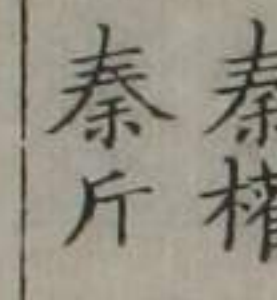 秦權
秦斤